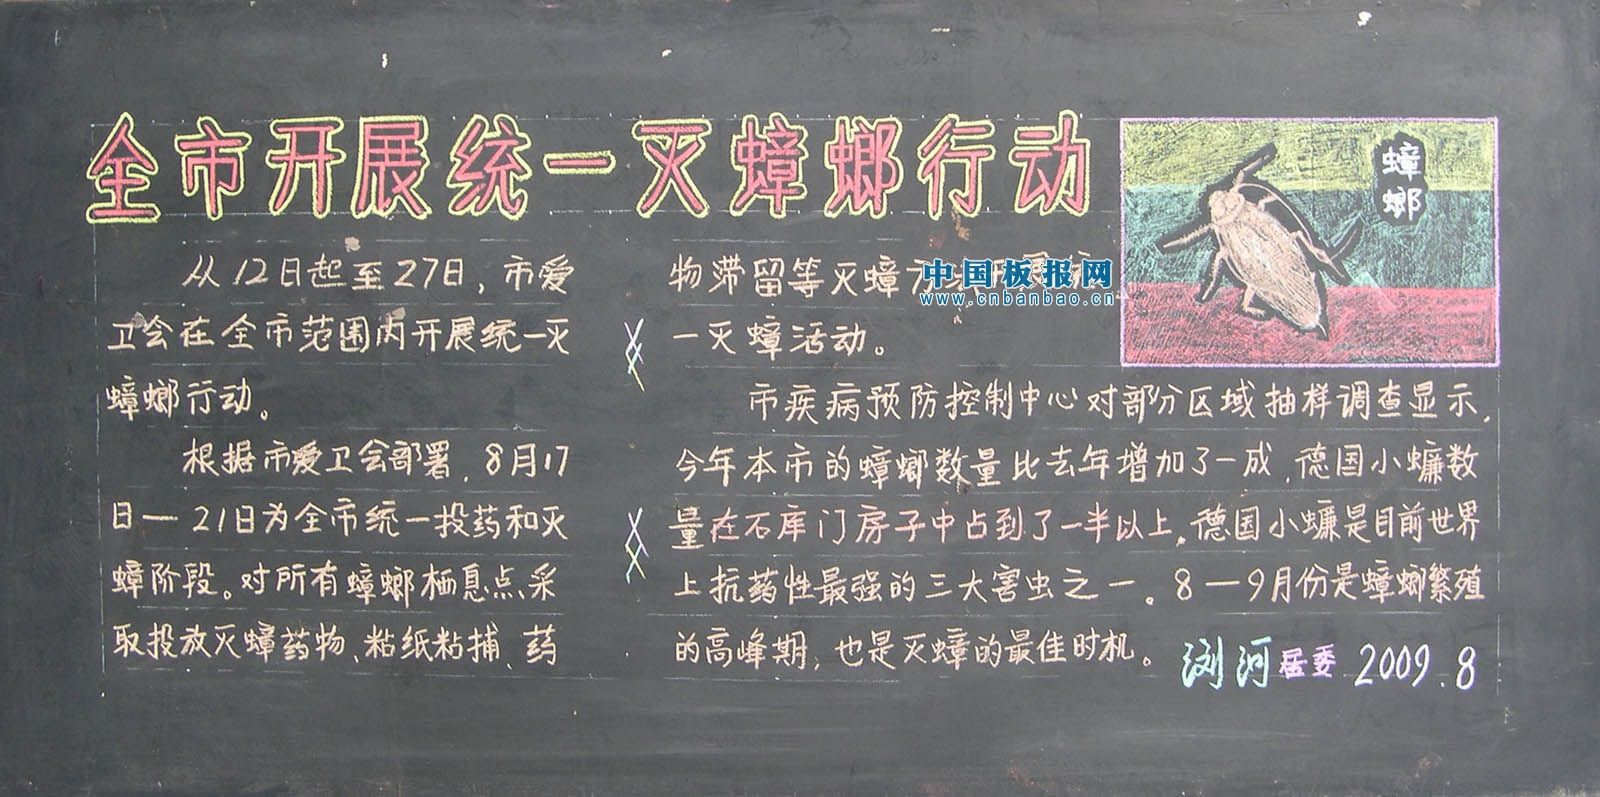 全市开展统一灭蟑螂行动
蟑
螂
从12日起至27日，市爱
卫会在全市范围内开展统一灭
蟑螂行动。
根据市爱卫会部署，8月17
日—21日为全市统一投药和灭
蟑阶段。对所有蟑螂栖息点采
取投放灭蟑药物、粘纸粘捕、药
物滞留等灭蟑
中国板报网
www.cnbanbao.cn
一灭蟑活动。
市疾病预防控制中心对部分区域抽样调查显示，
今年本市的蟑螂数量比去年增加了一成，德国小蠊数
量在石库门房子中占到了一半以上。德国小蠊是目前世界
上抗药性最强的三大害虫之一。8—9月份是蟑螂繁殖
的高峰期，也是灭蟑的最佳时机。
浏河居委 2009.8